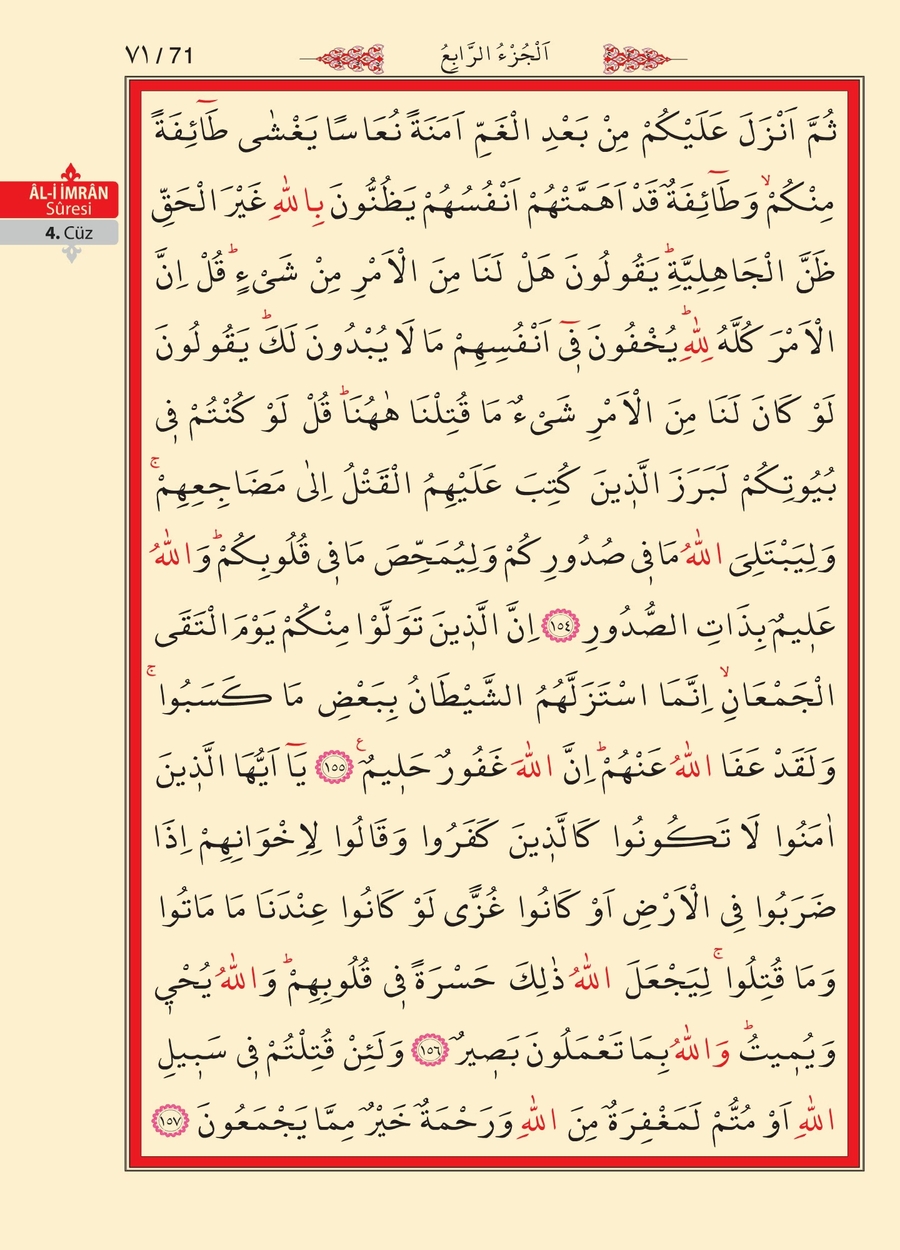 ٧١ / 71
اَلْجُزْءُ الرَّابِعُ
ÂL-İ İMRÂN
Sûresi
4. Cüz
ثُمَّ اَنْزَلَ عَلَيْكُمْ مِنْ بَعْدِ الْغَمِّ اَمَنَةً نُعَاسًا يَغْشٰى طَٓائِفَةً
مِنْكُمْۙ وَطَٓائِفَةٌ قَدْ اَهَمَّتْهُمْ اَنْفُسُهُمْ يَظُنُّونَ بِاللّٰهِ غَيْرَ الْحَقِّ
ظَنَّ الْجَاهِلِيَّةِۜ يَقُولُونَ هَلْ لَنَا مِنَ الْاَمْرِ مِنْ شَيْءٍۜ قُلْ اِنَّ
الْاَمْرَ كُلَّهُ لِلّٰهِۜ يُخْفُونَ ف۪ٓي اَنْفُسِهِمْ مَا لَا يُبْدُونَ لَكَۜ يَقُولُونَ
لَوْ كَانَ لَنَا مِنَ الْاَمْرِ شَيْءٌ مَا قُتِلْنَا هٰهُنَاۜ قُلْ لَوْ كُنْتُمْ ف۪ي
بُيُوتِكُمْ لَبَرَزَ الَّذ۪ينَ كُتِبَ عَلَيْهِمُ الْقَتْلُ اِلٰى مَضَاجِعِهِمْۚ
وَلِيَبْتَلِيَ اللّٰهُ مَا ف۪ي صُدُورِكُمْ وَلِيُمَحِّصَ مَا ف۪ي قُلُوبِكُمْۜ وَاللّٰهُ
عَل۪يمٌ بِذَاتِ الصُّدُورِ ﴿١٥٤﴾ اِنَّ الَّذ۪ينَ تَوَلَّوْا مِنْكُمْ يَوْمَ الْتَقَى
الْجَمْعَانِۙ اِنَّمَا اسْتَزَلَّهُمُ الشَّيْطَانُ بِبَعْضِ مَا كَسَبُواۚ
وَلَقَدْ عَفَا اللّٰهُ عَنْهُمْۜ اِنَّ اللّٰهَ غَفُورٌ حَل۪يمٌ۟ ﴿١٥٥﴾ يَٓا اَيُّهَا الَّذ۪ينَ
اٰمَنُوا لَا تَكُونُوا كَالَّذ۪ينَ كَفَرُوا وَقَالُوا لِاِخْوَانِهِمْ اِذَا
ضَرَبُوا فِي الْاَرْضِ اَوْ كَانُوا غُزًّى لَوْ كَانُوا عِنْدَنَا مَا مَاتُوا
وَمَا قُتِلُواۚ لِيَجْعَلَ اللّٰهُ ذٰلِكَ حَسْرَةً ف۪ي قُلُوبِهِمْۜ وَاللّٰهُ يُحْي۪
وَيُم۪يتُۜ وَاللّٰهُ بِمَا تَعْمَلُونَ بَص۪يرٌ ﴿١٥٦﴾ وَلَئِنْ قُتِلْتُمْ ف۪ي سَب۪يلِ
اللّٰهِ اَوْ مُتُّمْ لَمَغْفِرَةٌ مِنَ اللّٰهِ وَرَحْمَةٌ خَيْرٌ مِمَّا يَجْمَعُونَ ﴿١٥٧﴾